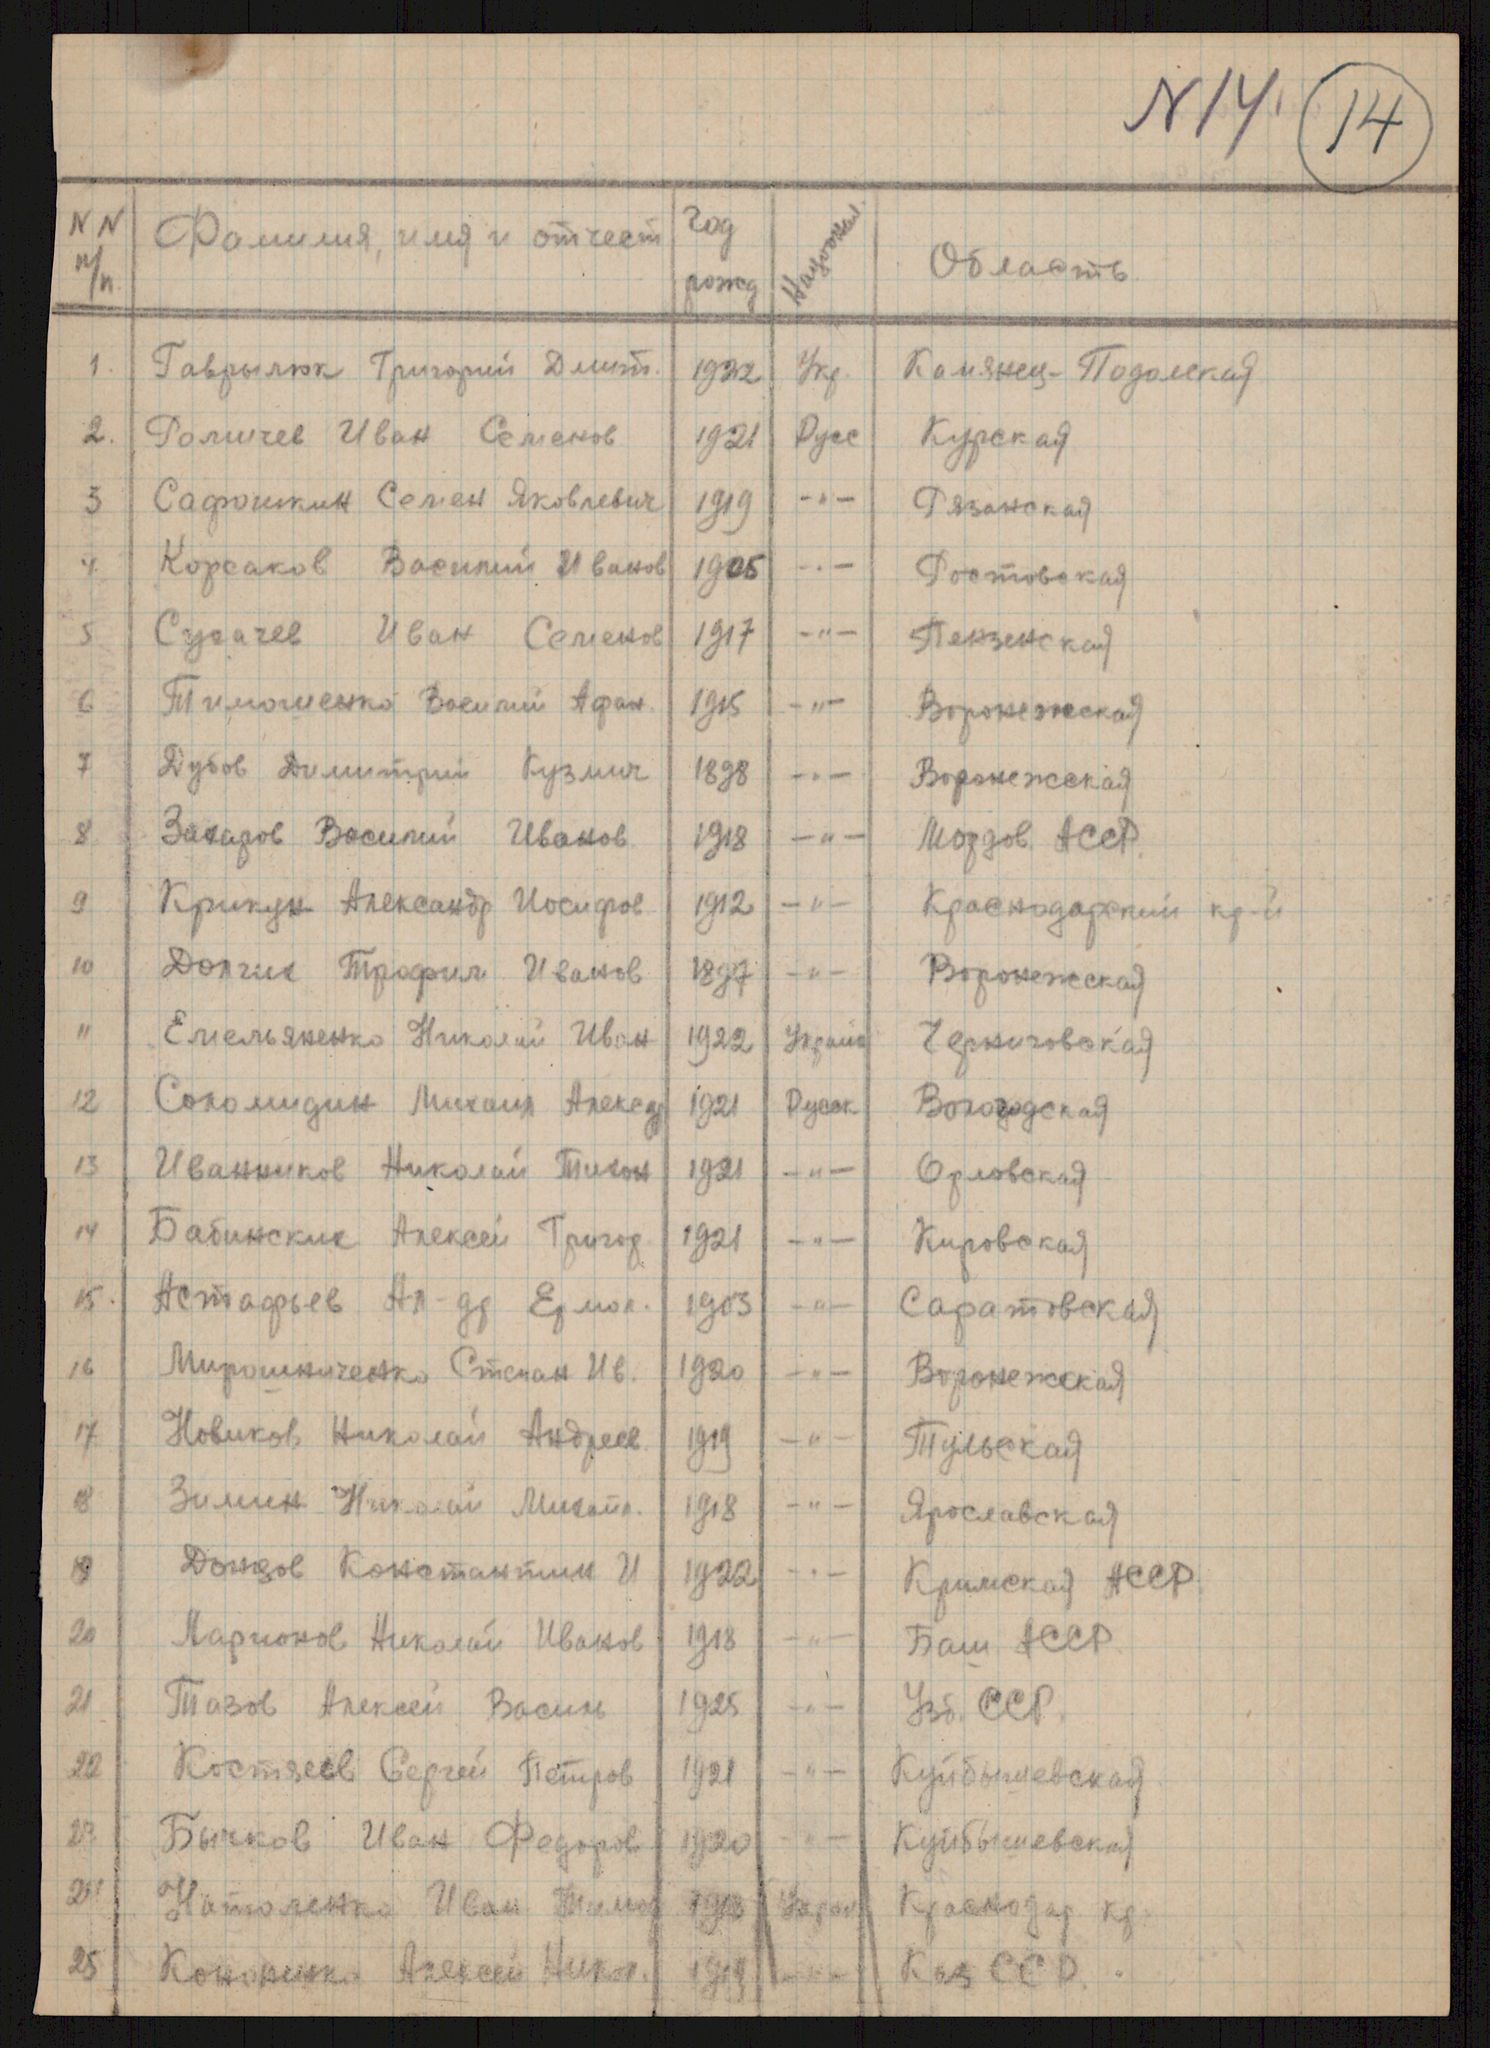 N 14. 14
NN п/п. Фамилия, имя и отчест Год рожд Национал. Область
1. Гаврылюк Григорий Дмит. 1922 Укр. Камянец-Подолская
2. Роличев Иван Семенов 1921 Русс Курская
3 Сафошкин Семен Яковлевич 1919 -"- Рязанская
4 Корсаков Василий Иванов 1905 -"- Ростовская
5 Сугачев Иван Семенов 1917 -"- Пензенская
6 Тимошенко Василий Афан. 1915 -"- Воронежская
7 Дубов Димитрий Кузмич 1898 -"- Воронежская
8 Захаров Василий Иванов 1918 -"- Мордов. АССР.
9 Крикун Александр Иосифов 1912 -"- Краснодарский кр-й
10 Долгих Трофим Иванов 1897 -"- Воронежская
11 Емельяненко Николай Иван 1922 Украин Черниговская
12 Соломидин Михаил Александр 1921 Русск Вологодская
13 Иванников Николай Тихон 1921 -"- Орловская
14 Бабинских Алексей Григор. 1921 -"- Кировская
15. Астафьев Ал-др Ермол. 1903 -"- Саратовская
16 Мирошниченко Степан Ив. 1920 -"- Воронежская
17 Новиков Николай Андреев. 1919 -"- Тульская
18 Зимин Николай Михайл. 1918 -"- Ярославская
19 Донзов Константин И 1922 -"- Кримская АССР.
20 Ларионов Николай Иванов 1918 -"- Баш АССР.
21 Тазов Алексей Василь 1925 -"- Узб. ССР.
22 Костяев Сергей Петров 1921 -"- Куйбышевская
23 Бычков Иван Федоров 1920 -"- Куйбышевская
24 Натоленко Иван Тимоф Украин Краснодар кр.
25 Кононенко Алексей Никол. 1919 -"- Каз ССР.